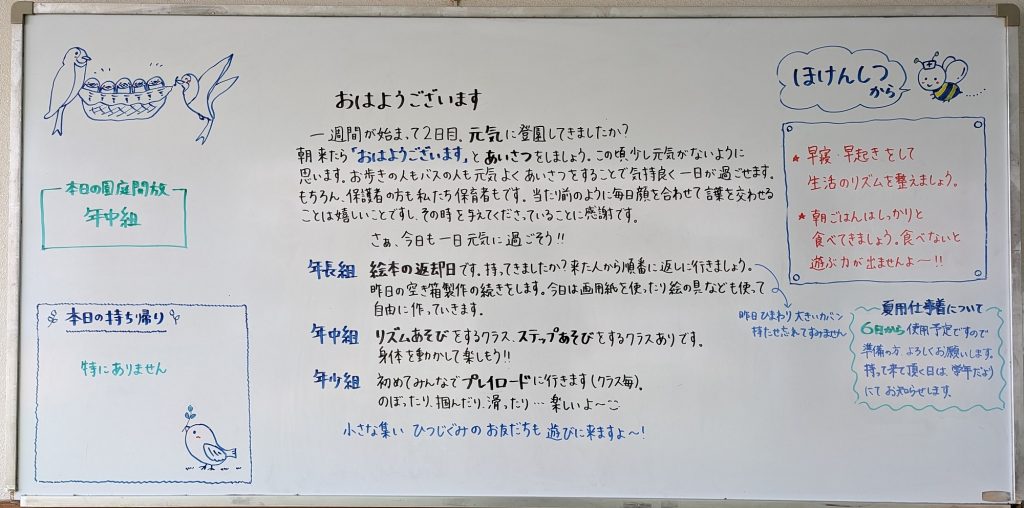 おはようございます
一週間が始まって2日目、元気に登園してきましたか?
朝来たら「おはようございます」とあいさつをしましょう。この頃少し元気がないように
思います。お歩きの人もバスの人も元気よくあいさつをすることで気持良く一日が過ごせます。
もちろん、保護者の方も私たち保育者もです。当たり前のように毎日顔を合わせて言葉を交わせる
ことは嬉しいことですし、その時を与えてくださっていることに感謝です。
さぁ、今日も一日元気に過ごそう!!
年長組 絵本の返却日です。持ってきましたか?来た人から順番に返しに行きましょう。
昨日の空き箱製作の続きをします。今日は画用紙を使ったり絵の具なども使って
自由に作っていきます。
昨日ひまわり大きいカバン
持たせ忘れてすみません
年中組 リズムあそびをするクラス、ステップあそびをするクラスありです。
身体を動かして楽しもう!!
年少組 初めてみんなでプレイロードに行きます(クラス毎)。
のぼったり、掴んだり、滑ったり…楽しいよ~
小さな集い ひつじぐみのお友だちも遊びに来ますよ~!
本日の園庭開放
年中組
本日の持ち帰り
特にありません
ほけんしつ
から
★早寝・早起きをして
生活のリズムを整えましょう。
★朝ごはんはしっかりと
食べてきましょう。食べないと
遊ぶ力が出ませんよ~!!
夏用仕事着について
6月から使用予定ですので
準備の方よろしくお願いします。
持って来て頂く日は、学年だより
にてお知らせします。